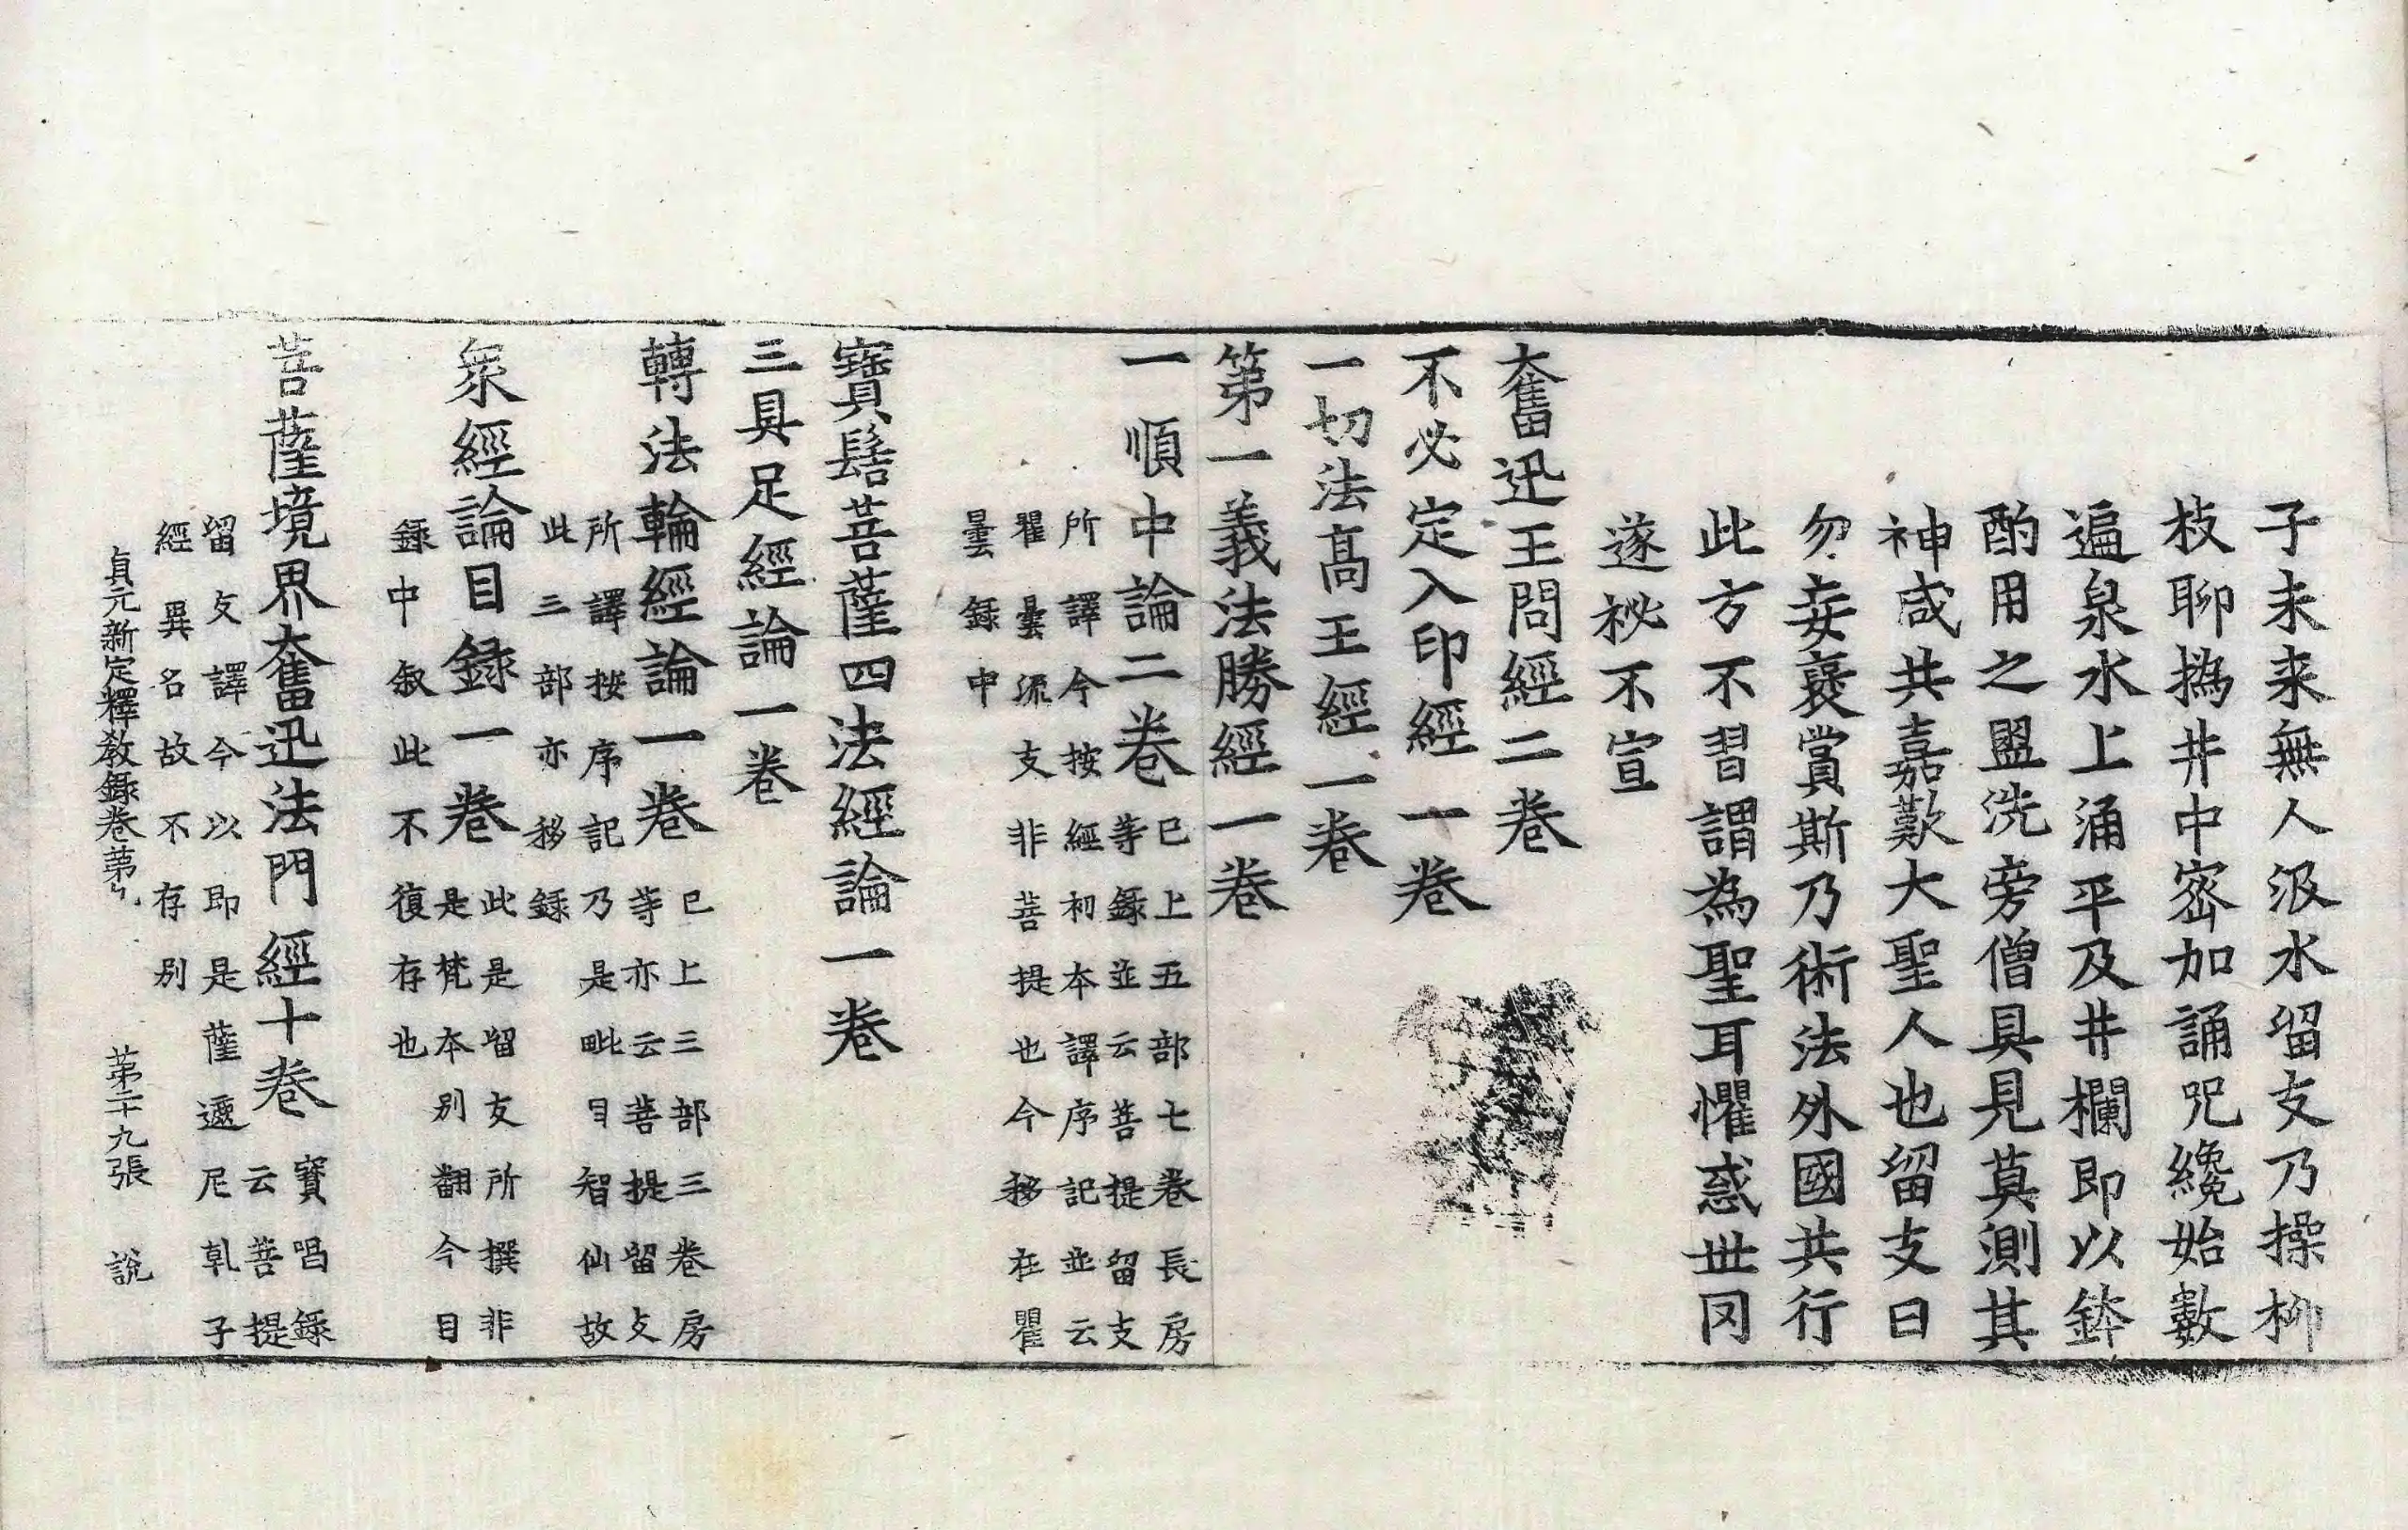 子未来無人汲水留支乃操柳
枝聊撝井中宻加誦呪纔始數
遍泉水上涌平及井欄即以鉢
酌用之盥洗旁僧具見莫測其
神咸共嘉歎大聖人也留支曰
勿妄褒賞斯乃術法外國共行
此方不習謂為聖耳懼惑世罔
遂祕不宣
奮迅王問經二卷
不必定入印經一卷
一切法髙王經一卷
第一義法勝經一卷
一順中論二卷
已上五部七卷長房
等錄並云菩提留支
所譯今按經初本譯序記並云
瞿曇流支非菩提也今移在瞿
曇錄中
寶髻菩薩四法經論一卷
三具足經論一卷
轉法輪經論一卷
已上三部三卷房
等亦云菩提留支
所譯按序記乃是毗目智仙故
此三部亦移錄
衆經論目錄一卷
此是留支所撰非
是梵本别翻今目
錄中叙此不復存也
菩薩境界奮迅法門經十卷
寶唱錄
云菩提
留支譯今以即是薩遮尼乹子
經異名故不存别
貞元新定釋教錄卷苐九
苐二十九張
說